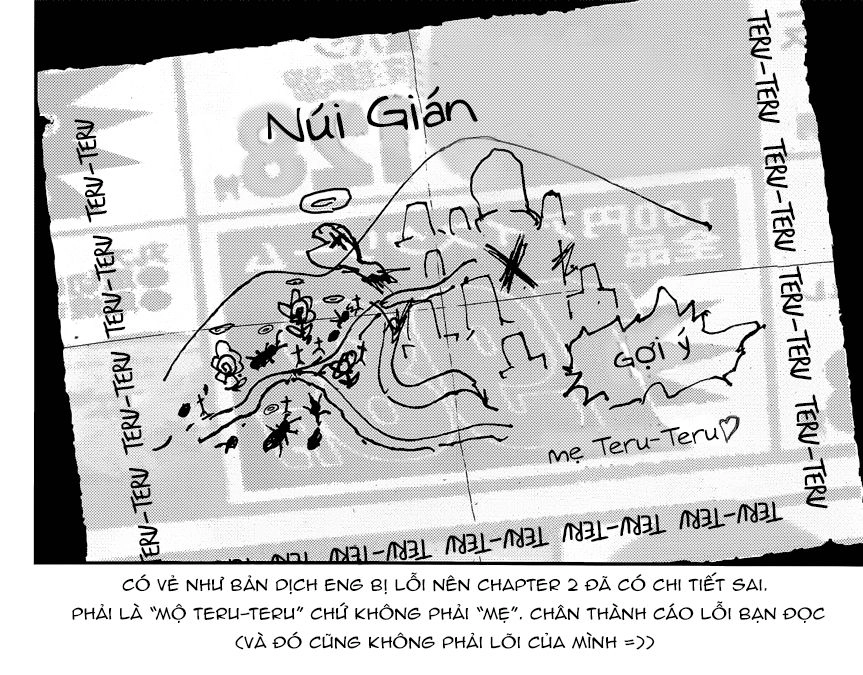 Núi Gián
TERU-TERU TERU-TERU TERU-TERU TERU-TERU
TERU-TERU TERU-TERU TERU-TERU TERU-TERU
Gợi ý
mẹ Teru-Teru♡
TERU-TERU TERU-TERU TERU-TERU TERU-TERU
128
全品
CÓ VẺ NHƯ BẢN DỊCH ENG BỊ LỖI NÊN CHAPTER 2 ĐÃ CÓ CHI TIẾT SAI.
PHẢI LÀ "MỘ TERU-TERU" CHỨ KHÔNG PHẢI "MẸ". CHÂN THÀNH CÁO LỖI BẠN ĐỌC
(VÀ ĐÓ CŨNG KHÔNG PHẢI LÕI CỦA MÌNH =))